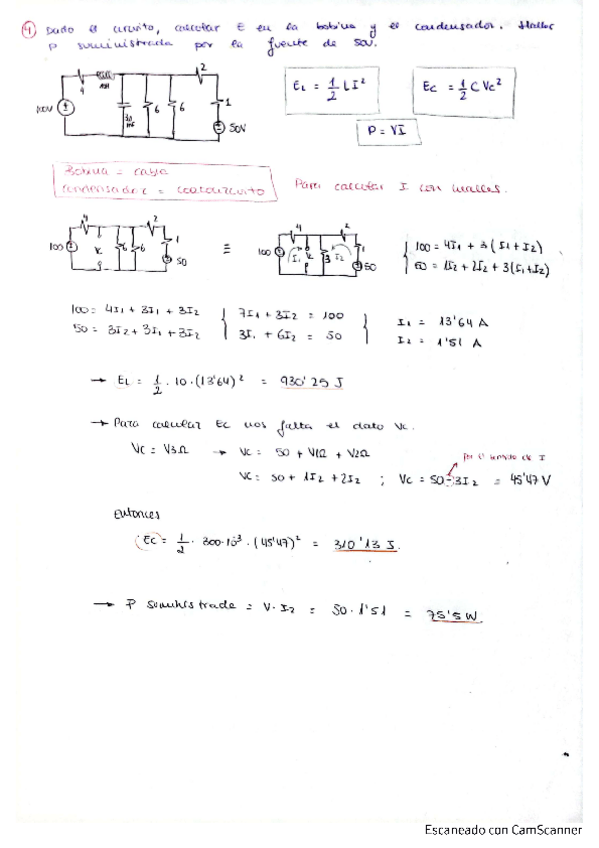 4) Dado el circuito, calcular E en la bobina y el condensador. Hallar
P suministrada por la fuente de 50V.
E_L = 1/2 L I²
E_C = 1/2 C V_C²
P = VI
4
2
100V
6
6
1
50V
Bobina = cable
Para calcular I con mallas.
4
2
100
V_C
6
6
1
50
≡
4
2
100
I₁
3
I₂
1
50
100 = 4I₁ + 3(I₁+I₂)
50 = 1I₂ + 2I₂ + 3(I₁+I₂)
100 = 4I₁ + 3I₁ + 3I₂
50 = 3I₂ + 3I₁ + 3I₂
7I₁ + 3I₂ = 100
3I₁ + 6I₂ = 50
I₁ = 13'64 A
I₂ = 1'51 A
→ E_L = 1/2 · 10 · (13'64)² = 930'25 J
→ Para calcular E_C nos falta el dato V_C.
V_C = V3Ω → V_C = 50 + V1Ω + V2Ω
por el sentido de I
V_C = 50 + 1I₂ + 2I₂ ; V_C = 50 - 3I₂ = 45'47 V
Entonces
E_C = 1/2 · 300·10⁻³ · (45'47)² = 310'13 J.
→ P suministrada = V·I₂ = 50 · 1'51 = 75'5 W.
Escaneado con CamScanner